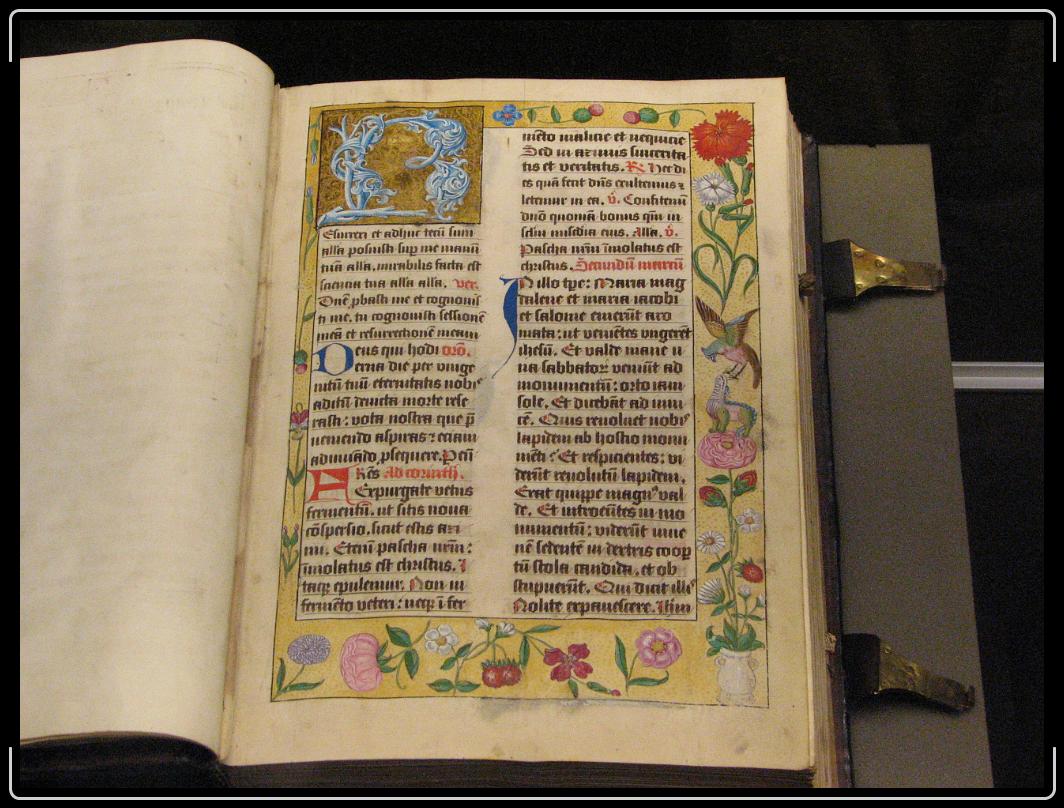 R
Esurrexi et adhuc tecū sum
alla posuisti sup me manū
tuā alla. mirabilis facta est
sciencia tua alla alla. ver.
Dñe pbasti me et cognouisti
ti me. tu cognouisti sessionē
meā et resurrectionē meam
Deus qui hodi orō.
erna die per vnige
nitū tuū eternitatis nobꝰ
aditū deuicta morte rese
rasti: vota nostra que p̄
ueniendo aspiras: eciam
adiuuādo psequere. Peū
Frēs Ad corinth.
Expurgate vetus
fermentū. ut sitis noua
cōspersio. sicut estis azi
mi. Etenī pascha nrm:
imolatus est christus. I
taqꝫ epulemur. Non in
fermēto veteri: neqꝫ ī fer
mēto malicie et nequicie
Sed in azimis sincerita
tis et veritatis. R Hec di
es quā fecit dñs exultemus ⁊
letemur in ea. v̄. Confitemī
dnō quoniā bonus qm̄ in
sclm̄ misedia eius. Alla. v̄.
Pascha nrm̄ īmolatus est
christus. Secundū marcū
IN illo tpe: Maria mag
dalene et maria iacobi
et salome emerūt aro
mata: ut veniētes vngerēt
ihesū. Et valde mane u
na sabbatoꝝ veniūt ad
monumentū: orto iam
sole. Et dicebāt ad inui
cē. Quis reuoluet nobꝰ
lapidem ab hostio monu
mēti? Et respicientes: vi
derūt reuolutū lapidem.
Erat quippe magnꝰ val
de. Et introeūtes in mo
numentū: viderūt iuue
nē sedentē in dextris coop
tū stola candida. et ob
stupuerūt. Qui dicit illiꝰ
Nolite expauescere. Ihm